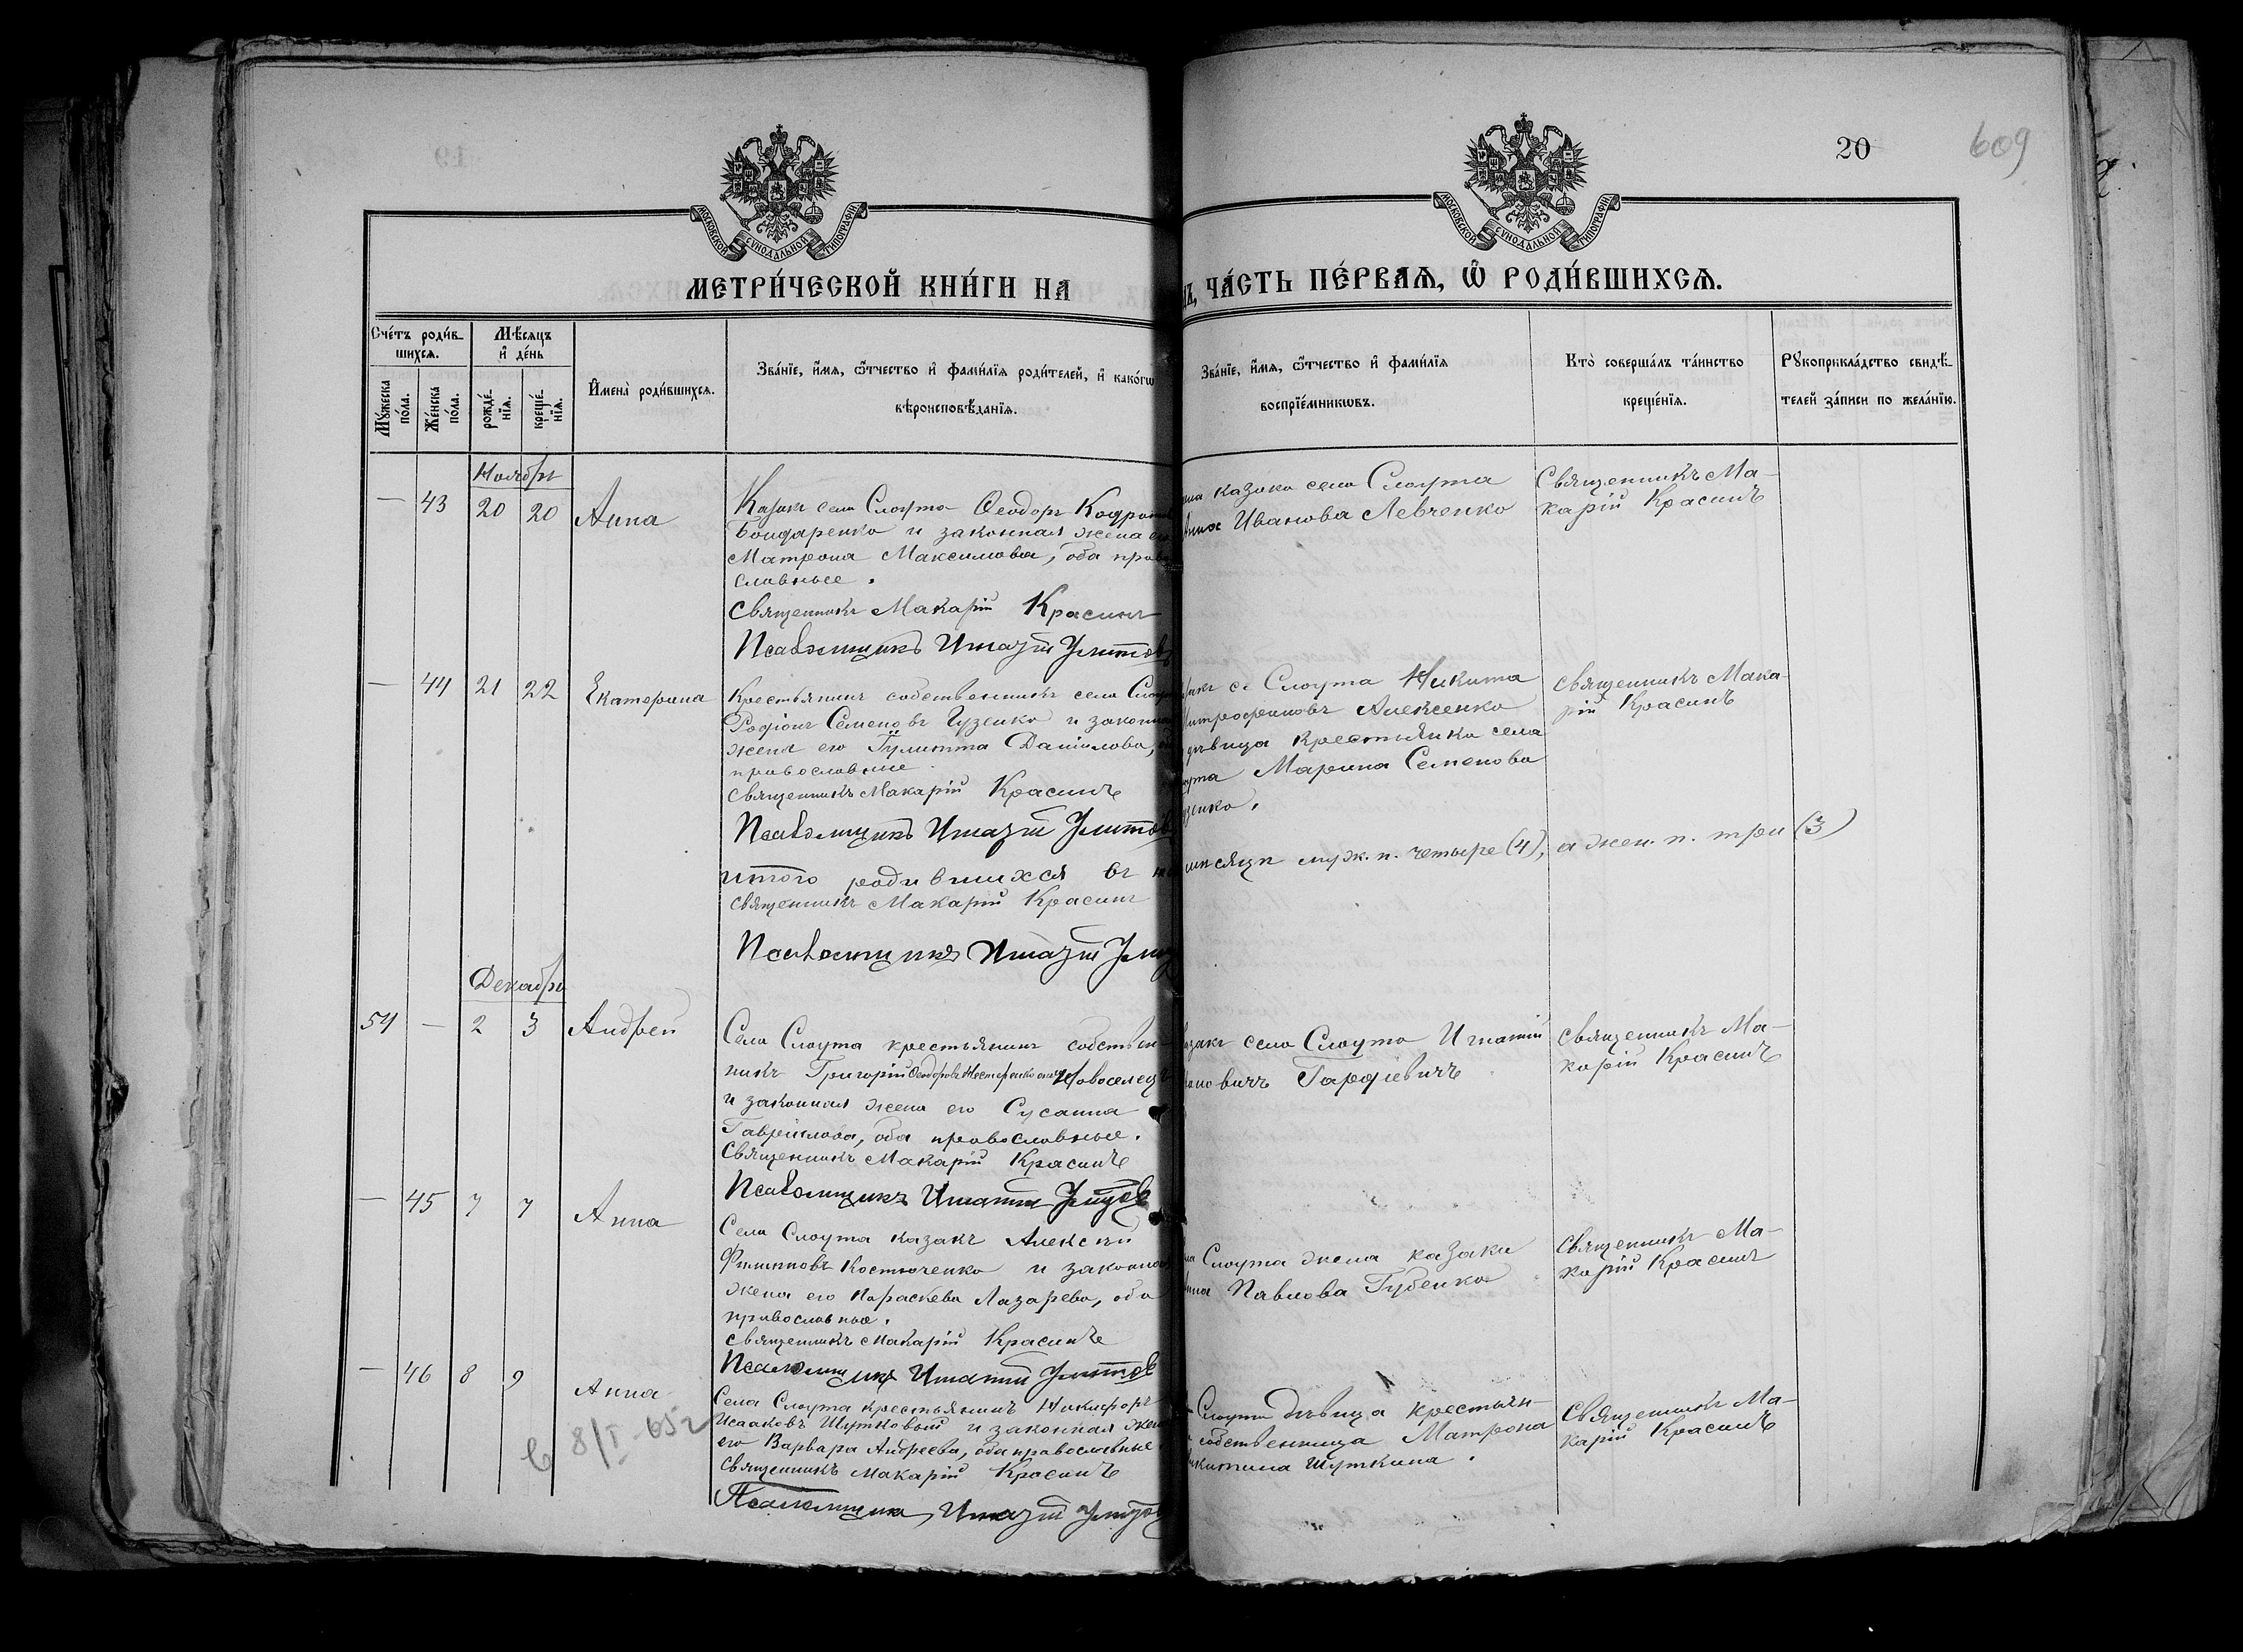 20
609
МОСКОВСКОЙ СѴНОДАЛЬНОЙ ТИПОГРАФІИ
МОСКОВСКОЙ СѴНОДАЛЬНОЙ ТИПОГРАФІИ
МЕТРИ́ЧЕСКОЙ КНИ́ГИ НА
ЧА́СТЬ ПЕ́РВАѦ, Ѿ РОДИ́ВШИХСѦ.
Сче́тъ роди́вшихсѧ.
Мꙋ́жеска по́ла.
Же́нска по́ла.
Мѣ́сѧцъ и҆ де́нь
рожде́нїѧ.
креще́нїѧ.
И҆мена̀ роди́вшихсѧ.
Зва́нїе, и҆́мѧ, ѻ҆́тчество и҆ фами́лїѧ роди́телей, и҆ како́гѡ
вѣроисповѣ́данїѧ.
Зва́нїе, и҆́мѧ, ѻ҆́тчество и҆ фами́лїѧ
воспрїе́мникѡвъ.
Кто̀ соверша́лъ та́инство
креще́нїѧ.
Рꙋкоприкла́дство свидѣ́-
телей за́писи по жела́нїю.
Ноябрь
— 43 20 20 Анна
Казакъ села Слоута Ѳеодоръ
Бондаренко и законная жена
Матрона Максимова, оба
славные.
Священникъ Макарій Красинъ
Псаломщикъ Игнатій
казака села Слоута
Иванова Левченко
Священникъ Ма-
карій Красинъ
— 44 21 22 Екатерина
Крестьянинъ собственникъ села
Родіонъ Семеновъ Гузенко и
жена его Іулитта Даніилова,
православные.
Священникъ Макарій Красинъ
Псаломщикъ Игнатій
с. Слоута Никита
Алексенко
дѣвица крестьянка села
Марина Семенова
Священникъ Мака-
рій Красинъ
итого родившихся въ
муж. п. четыре (4), а жен. п. три (3)
Священникъ Макарій Красинъ
Псаломщикъ Игнатій
Декабрь
54 — 2 3 Андрей
Села Слоута крестьянинъ собствен-
никъ Григорій Ѳеодоровъ Нестеренко
и законная жена его Сусанна
Гавріилова, оба православные.
Священникъ Макарій Красинъ
Псаломщикъ Игнатій
села Слоута Игнатій
Гардіевичъ
Священникъ Ма-
карій Красинъ
— 45 7 7 Анна
Села Слоута казакъ Алексѣй
Филипповъ Костюченко и
жена его Параскева Лазарева, оба
православные.
Священникъ Макарій Красинъ
Псаломщикъ Игнатій
Слоута жена казака
Павлова Губенко
Священникъ Ма-
карій Красинъ
— 46 8 9 Анна
Села Слоута крестьянинъ Никифоръ
Исааковъ и законная
его Варвара Андреева, оба православные
Священникъ Макарій Красинъ
Псаломщикъ Игнатій
Слоута дѣвица крестьян-
собственница Матрона
Шуткина.
Священникъ Ма-
карій Красинъ